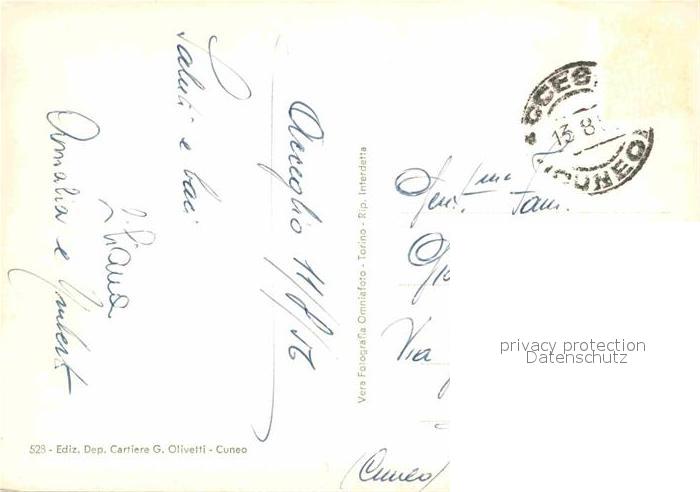 Acceglio 11/8/56
Saluti e baci
Liliana
Amalia e Umberto
528 - Ediz. Dep. Cartiere G. Olivetti - Cuneo
Vera Fotografia Omniafoto - Torino - Rip. Interdetta
CCEG
13.8
CUNEO
Gent.ma Fam.
Via
(Cuneo)
privacy protection
Datenschutz